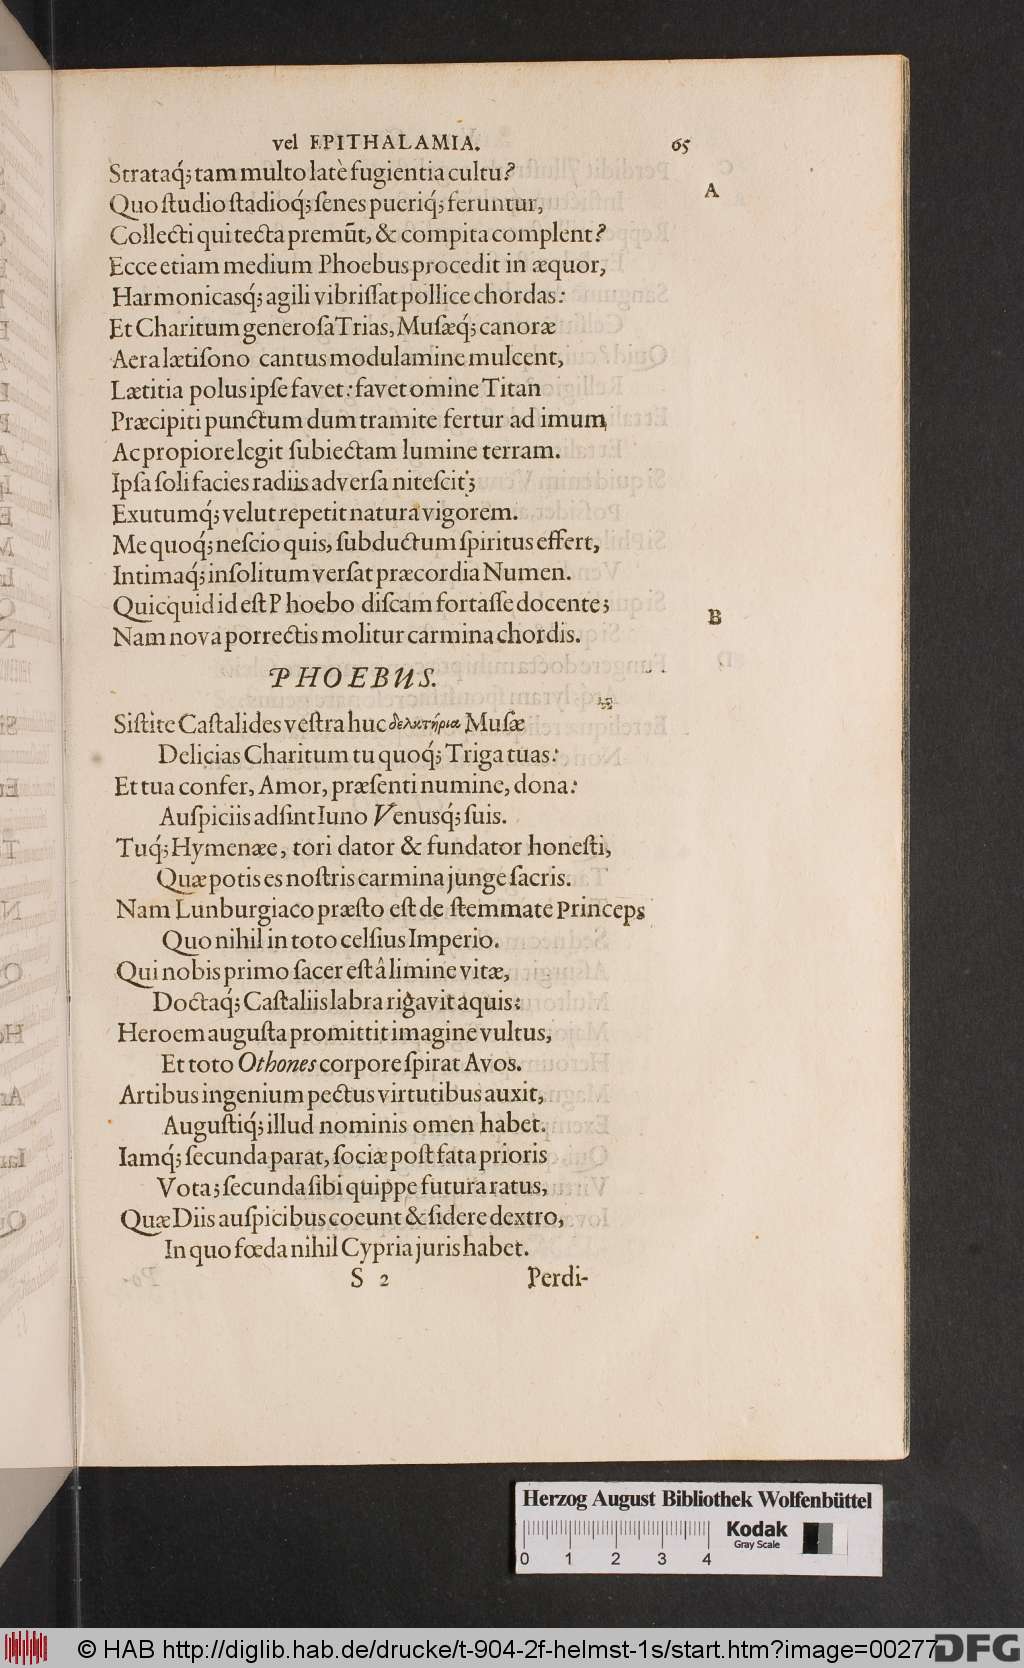 vel EPITHALAMIA. 65
Strataq́; tam multo latè fugientia cultu?
A
Quo ſtudio ſtadioq́; ſenes pueriq́; feruntur,
Collecti qui tecta premūt, & compita complent?
Ecce etiam medium Phoebus procedit in æquor,
Harmonicasq́; agili vibriſſat pollice chordas:
Et Charitum generoſa Trias, Muſæq́; canoræ
Aera lætiſono cantus modulamine mulcent,
Lætitia polus ipſe favet: favet omine Titan
Præcipiti punctum dum tramite fertur ad imum,
Ac propiore legit ſubiectam lumine terram.
Ipſa ſoli facies radiis adverſa niteſcit;
Exutumq́; velut repetit natura vigorem.
Me quoq́; neſcio quis, ſubductum ſpiritus effert,
Intimaq́; inſolitum verſat præcordia Numen.
Quicquid id eſt Phoebo diſcam fortaſſe docente;
B
Nam nova porrectis molitur carmina chordis.
PHOEBUS.
Siſtite Caſtalides veſtra huc δελκτήρια Muſæ
Delicias Charitum tu quoq́; Triga tuas:
Et tua confer, Amor, præſenti numine, dona:
Auſpiciis adſint Iuno Venusq́; ſuis.
Tuq́; Hymenæe, tori dator & fundator honeſti,
Quæ potis es noſtris carmina junge ſacris.
Nam Lunburgiaco præſto eſt de ſtemmate Princeps
Quo nihil in toto celſius Imperio.
Qui nobis primo ſacer eſt â limine vitæ,
Doctaq́; Caſtaliis labra rigavit aquis:
Heroem auguſta promittit imagine vultus,
Et toto Othones corpore ſpirat Avos.
Artibus ingenium pectus virtutibus auxit,
Auguſtiq́; illud nominis omen habet.
Iamq́; ſecunda parat, ſociæ poſt fata prioris
Vota; ſecunda ſibi quippe futura ratus,
Quæ Diis auſpicibus coeunt & ſidere dextro,
In quo fœda nihil Cypria juris habet.
S 2 Perdi-
Herzog August Bibliothek Wolfenbüttel
Kodak
Gray Scale
0 1 2 3 4
© HAB http://diglib.hab.de/drucke/t-904-2f-helmst-1s/start.htm?image=00277
DFG